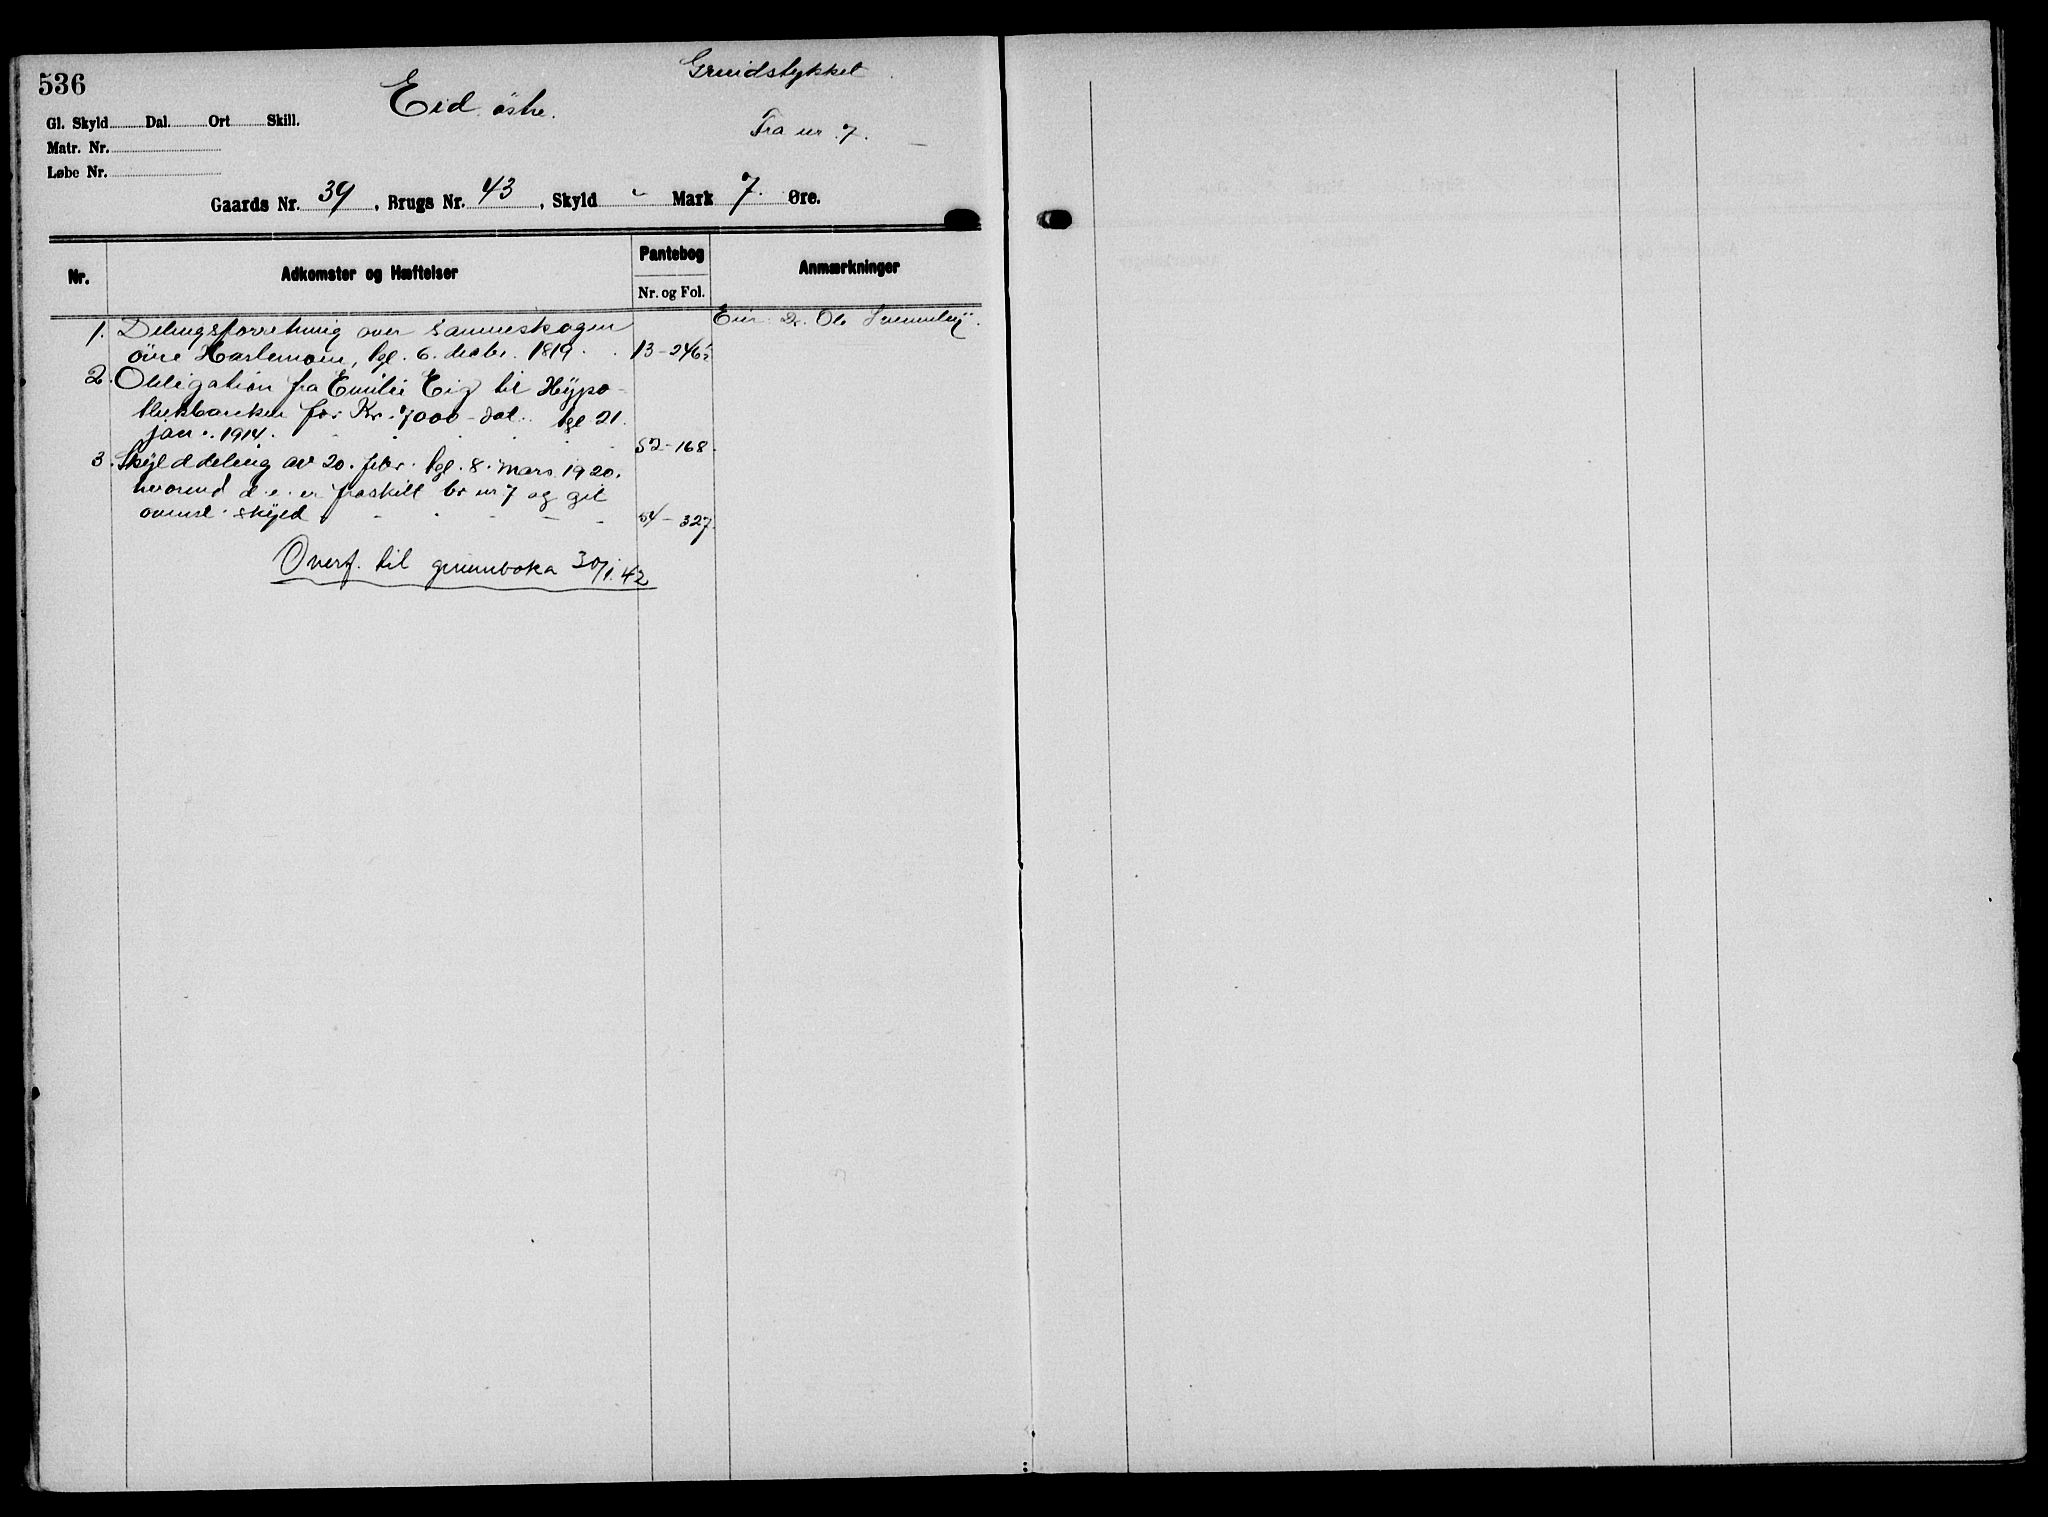 536
Grundstykket
Eid østre.
Fra nr. 7.
Gl. Skyld Dal. Ort Skill.
Matr. Nr.
Løbe Nr.
Gaards Nr. 39, Brugs Nr. 43, Skyld - Mark 7. Øre.
Nr. Adkomster og Hæftelser Pantebog Anmærkninger
Nr. og Fol.
Eier Dr. Ole
1. Delingsforretning over Sanneskogen
øvre tgl. 6. decbr. 1819. 13-246
2. Obligation fra Emilie Eig til Hypo-
thekbanken for Kr. 7000 - dat. tgl 21
jan. 1914. 52-168.
3. Skylddeling av 20. febr. tgl. 8. mars 1920.
hvorved d. e. er fraskilt br nr 7 og git
ovenst. skyld 54-327.
Overf. til grunnboka 30/1.42